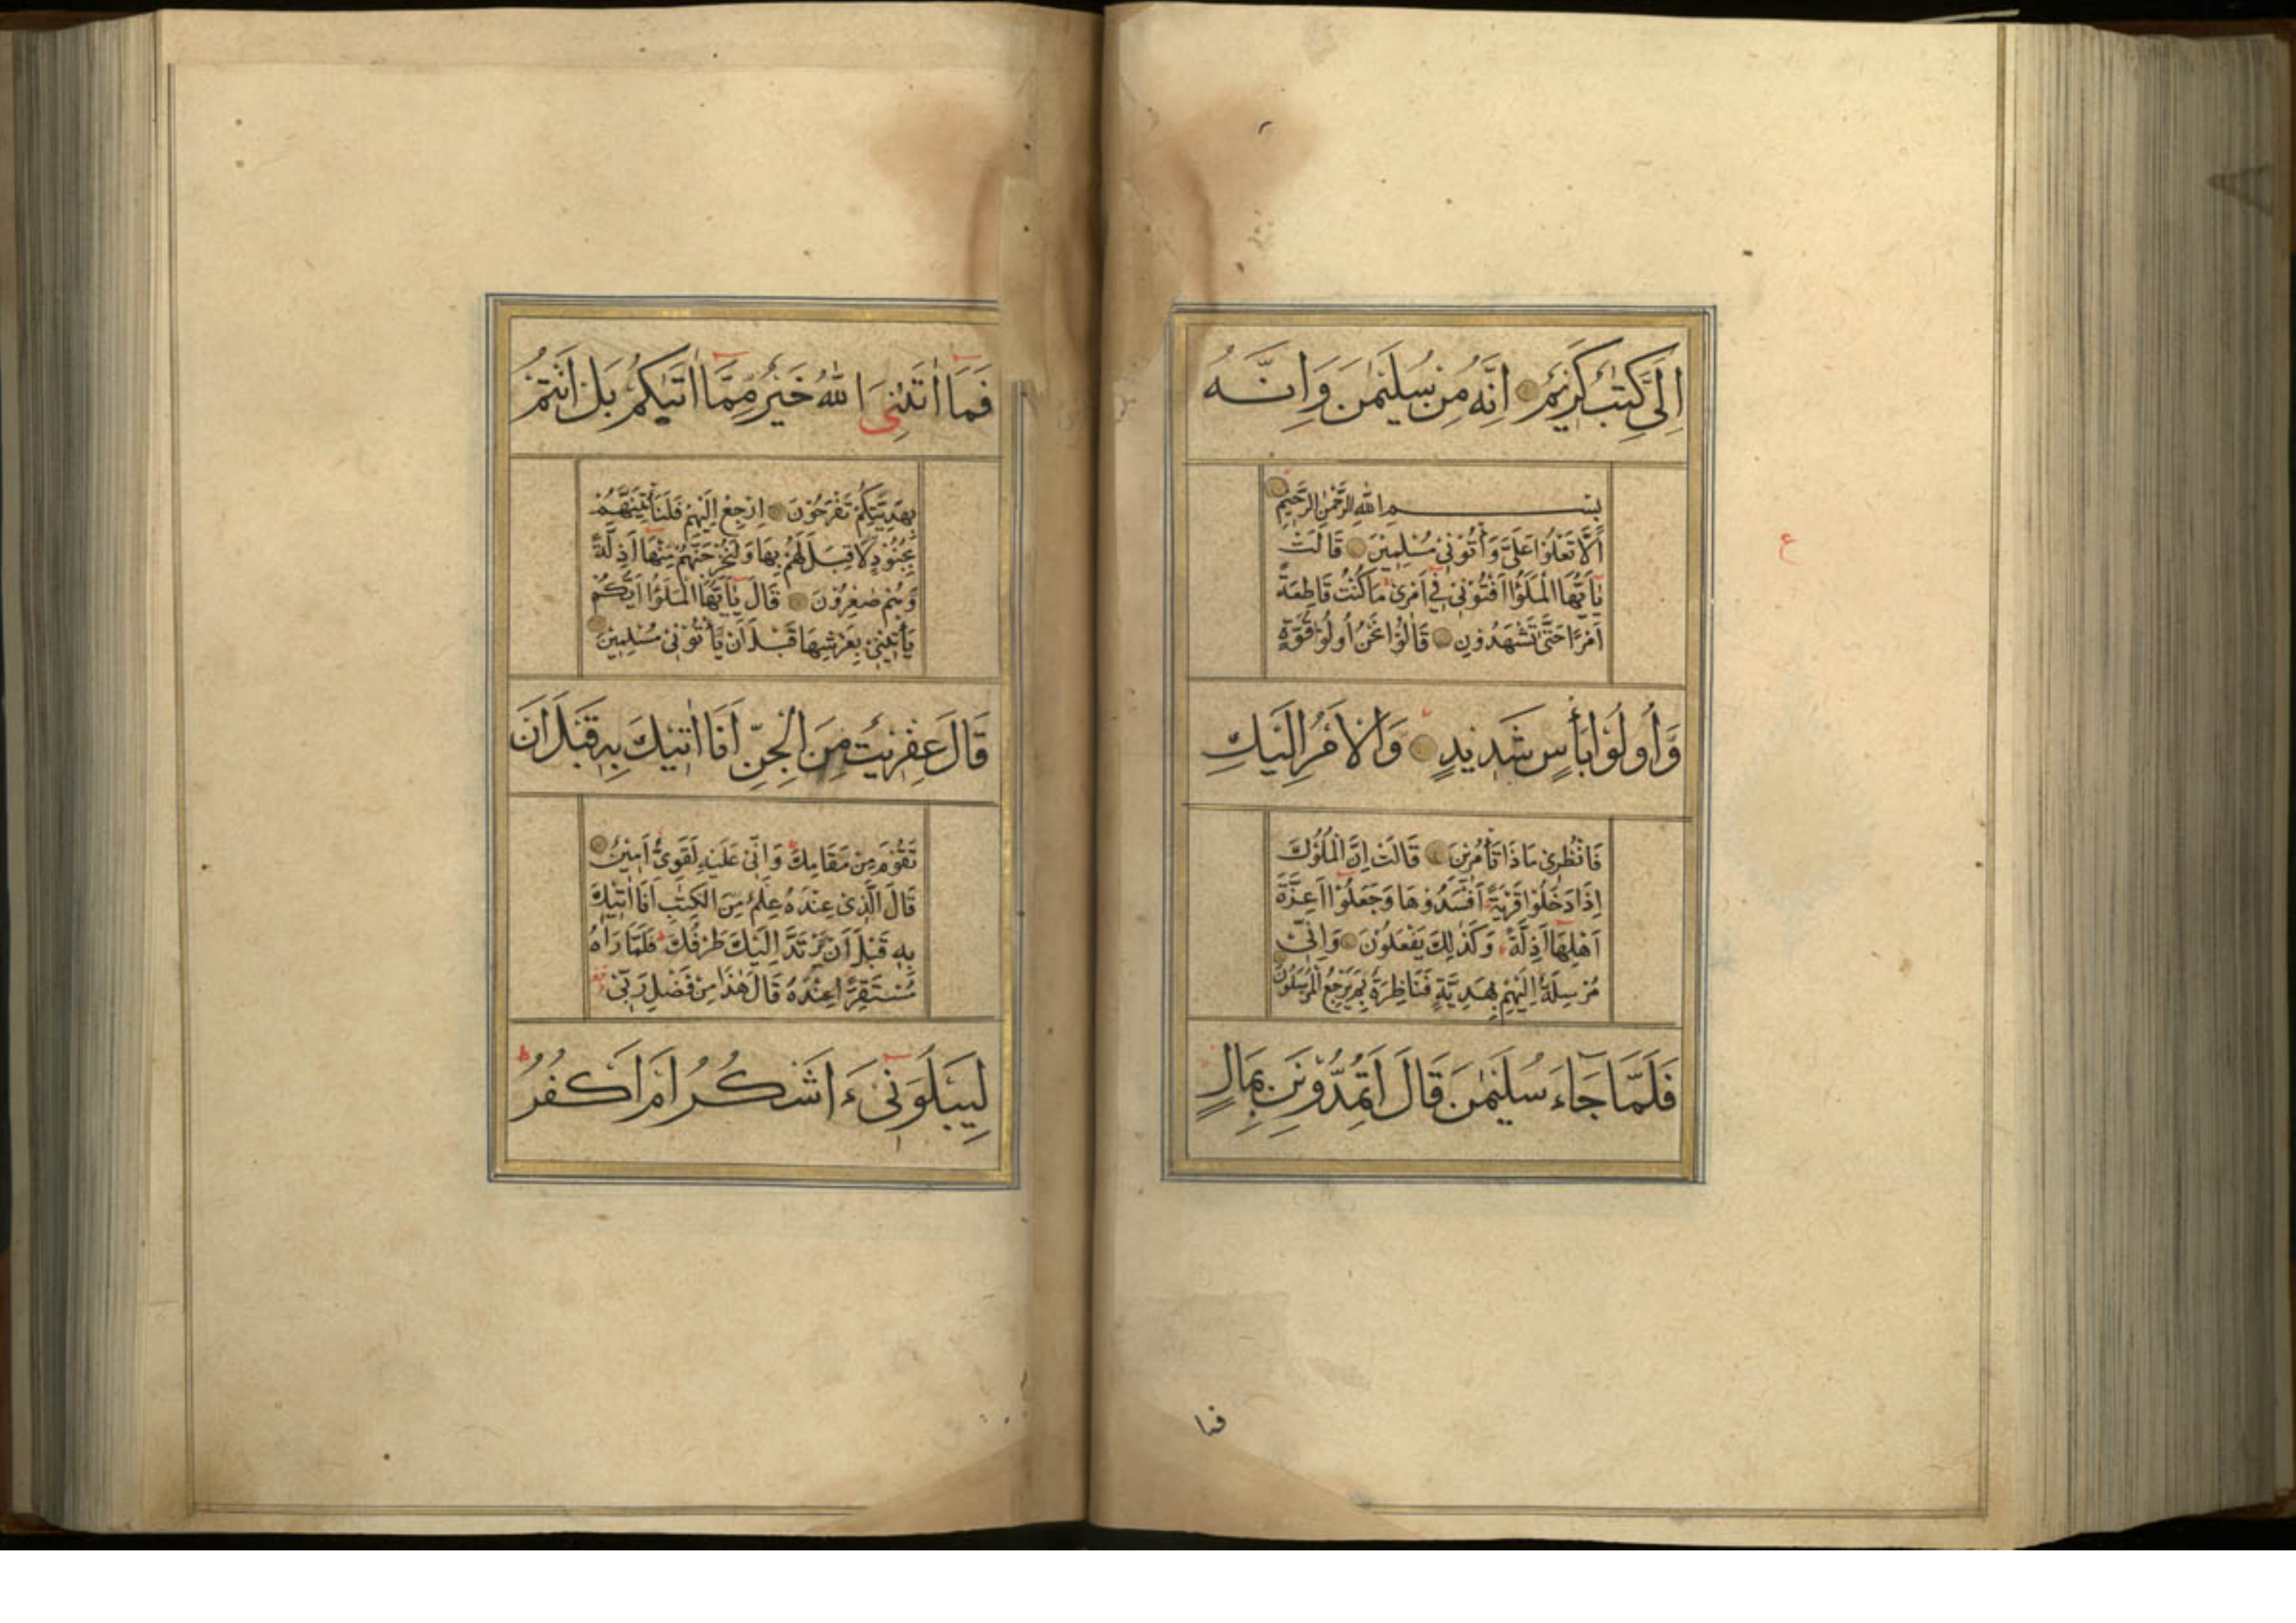 اِلَىَّ كِتٰبٌ كَرِيْمٌ اِنَّهُ مِنْ سُلَيْمٰنَ وَاِنَّهُ
بِسْمِ اللّٰهِ الرَّحْمٰنِ الرَّحِيْمِ
اَلَّا تَعْلُوْا عَلَىَّ وَأْتُوْنِىْ مُسْلِمِيْنَ قَالَتْ
يٰٓاَيُّهَا الْمَلَؤُا اَفْتُوْنِىْ فِىْٓ اَمْرِىْ مَا كُنْتُ قَاطِعَةً
اَمْرًا حَتّٰى تَشْهَدُوْنِ قَالُوْا نَحْنُ اُولُوْا قُوَّةٍ
وَّاُولُوْا بَأْسٍ شَدِيْدٍ وَالْاَمْرُ اِلَيْكِ
فَانْظُرِىْ مَاذَا تَأْمُرِيْنَ قَالَتْ اِنَّ الْمُلُوْكَ
اِذَا دَخَلُوْا قَرْيَةً اَفْسَدُوْهَا وَجَعَلُوْٓا اَعِزَّةَ
اَهْلِهَآ اَذِلَّةً وَكَذٰلِكَ يَفْعَلُوْنَ وَاِنِّىْ
مُرْسِلَةٌ اِلَيْهِمْ بِهَدِيَّةٍ فَنَاظِرَةٌ بِمَ يَرْجِعُ الْمُرْسَلُوْنَ
فَلَمَّا جَآءَ سُلَيْمٰنَ قَالَ اَتُمِدُّوْنَنِ بِمَالٍ
ع
فما
فَمَآ اٰتٰىنِىَ اللّٰهُ خَيْرٌ مِّمَّآ اٰتٰىكُمْ بَلْ اَنْتُمْ
بِهَدِيَّتِكُمْ تَفْرَحُوْنَ اِرْجِعْ اِلَيْهِمْ فَلَنَأْتِيَنَّهُمْ
بِجُنُوْدٍ لَا قِبَلَ لَهُمْ بِهَا وَلَنُخْرِجَنَّهُمْ مِنْهَآ اَذِلَّةً
وَهُمْ صٰغِرُوْنَ قَالَ يٰٓاَيُّهَا الْمَلَؤُا اَيُّكُمْ
يَأْتِيْنِىْ بِعَرْشِهَا قَبْلَ اَنْ يَّأْتُوْنِىْ مُسْلِمِيْنَ
قَالَ عِفْرِيْتٌ مِنَ الْجِنِّ اَنَا اٰتِيْكَ بِهِ قَبْلَ اَنْ
تَقُوْمَ مِنْ مَقَامِكَ وَاِنِّىْ عَلَيْهِ لَقَوِىٌّ اَمِيْنٌ
قَالَ الَّذِىْ عِنْدَهُ عِلْمٌ مِنَ الْكِتٰبِ اَنَا اٰتِيْكَ
بِهِ قَبْلَ اَنْ يَّرْتَدَّ اِلَيْكَ طَرْفُكَ فَلَمَّا رَاٰهُ
مُسْتَقِرًّا عِنْدَهُ قَالَ هٰذَا مِنْ فَضْلِ رَبِّىْ
لِيَبْلُوَنِىْٓ ءَاَشْكُرُ اَمْ اَكْفُرُ